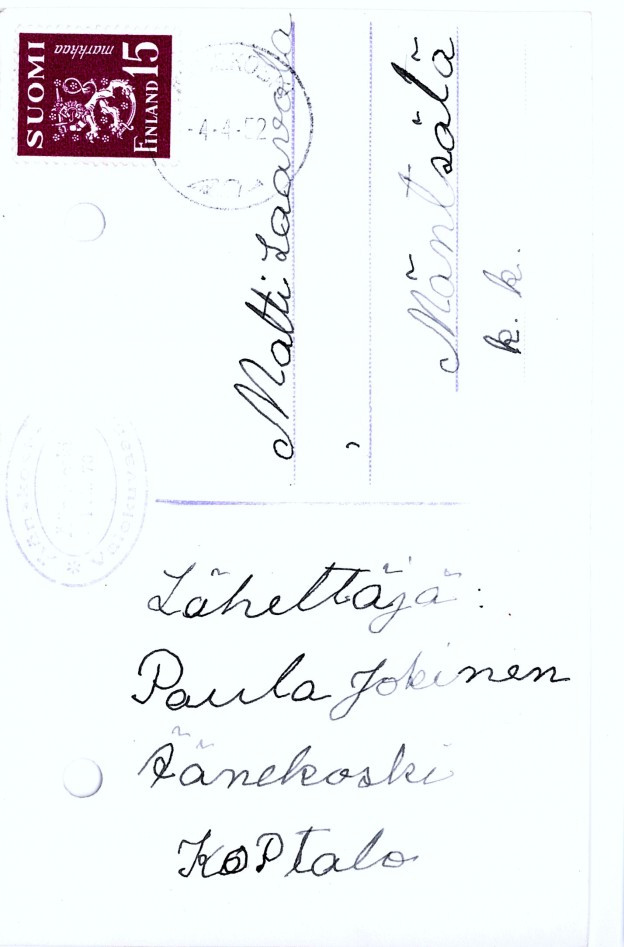 SUOMI
markkaa
15
FINLAND
-4-4-52
Matti Laavolla
Mäntsälä
k. k.
Lähettäjä:
Paula Jokinen
Äänekoski
KOPtalo